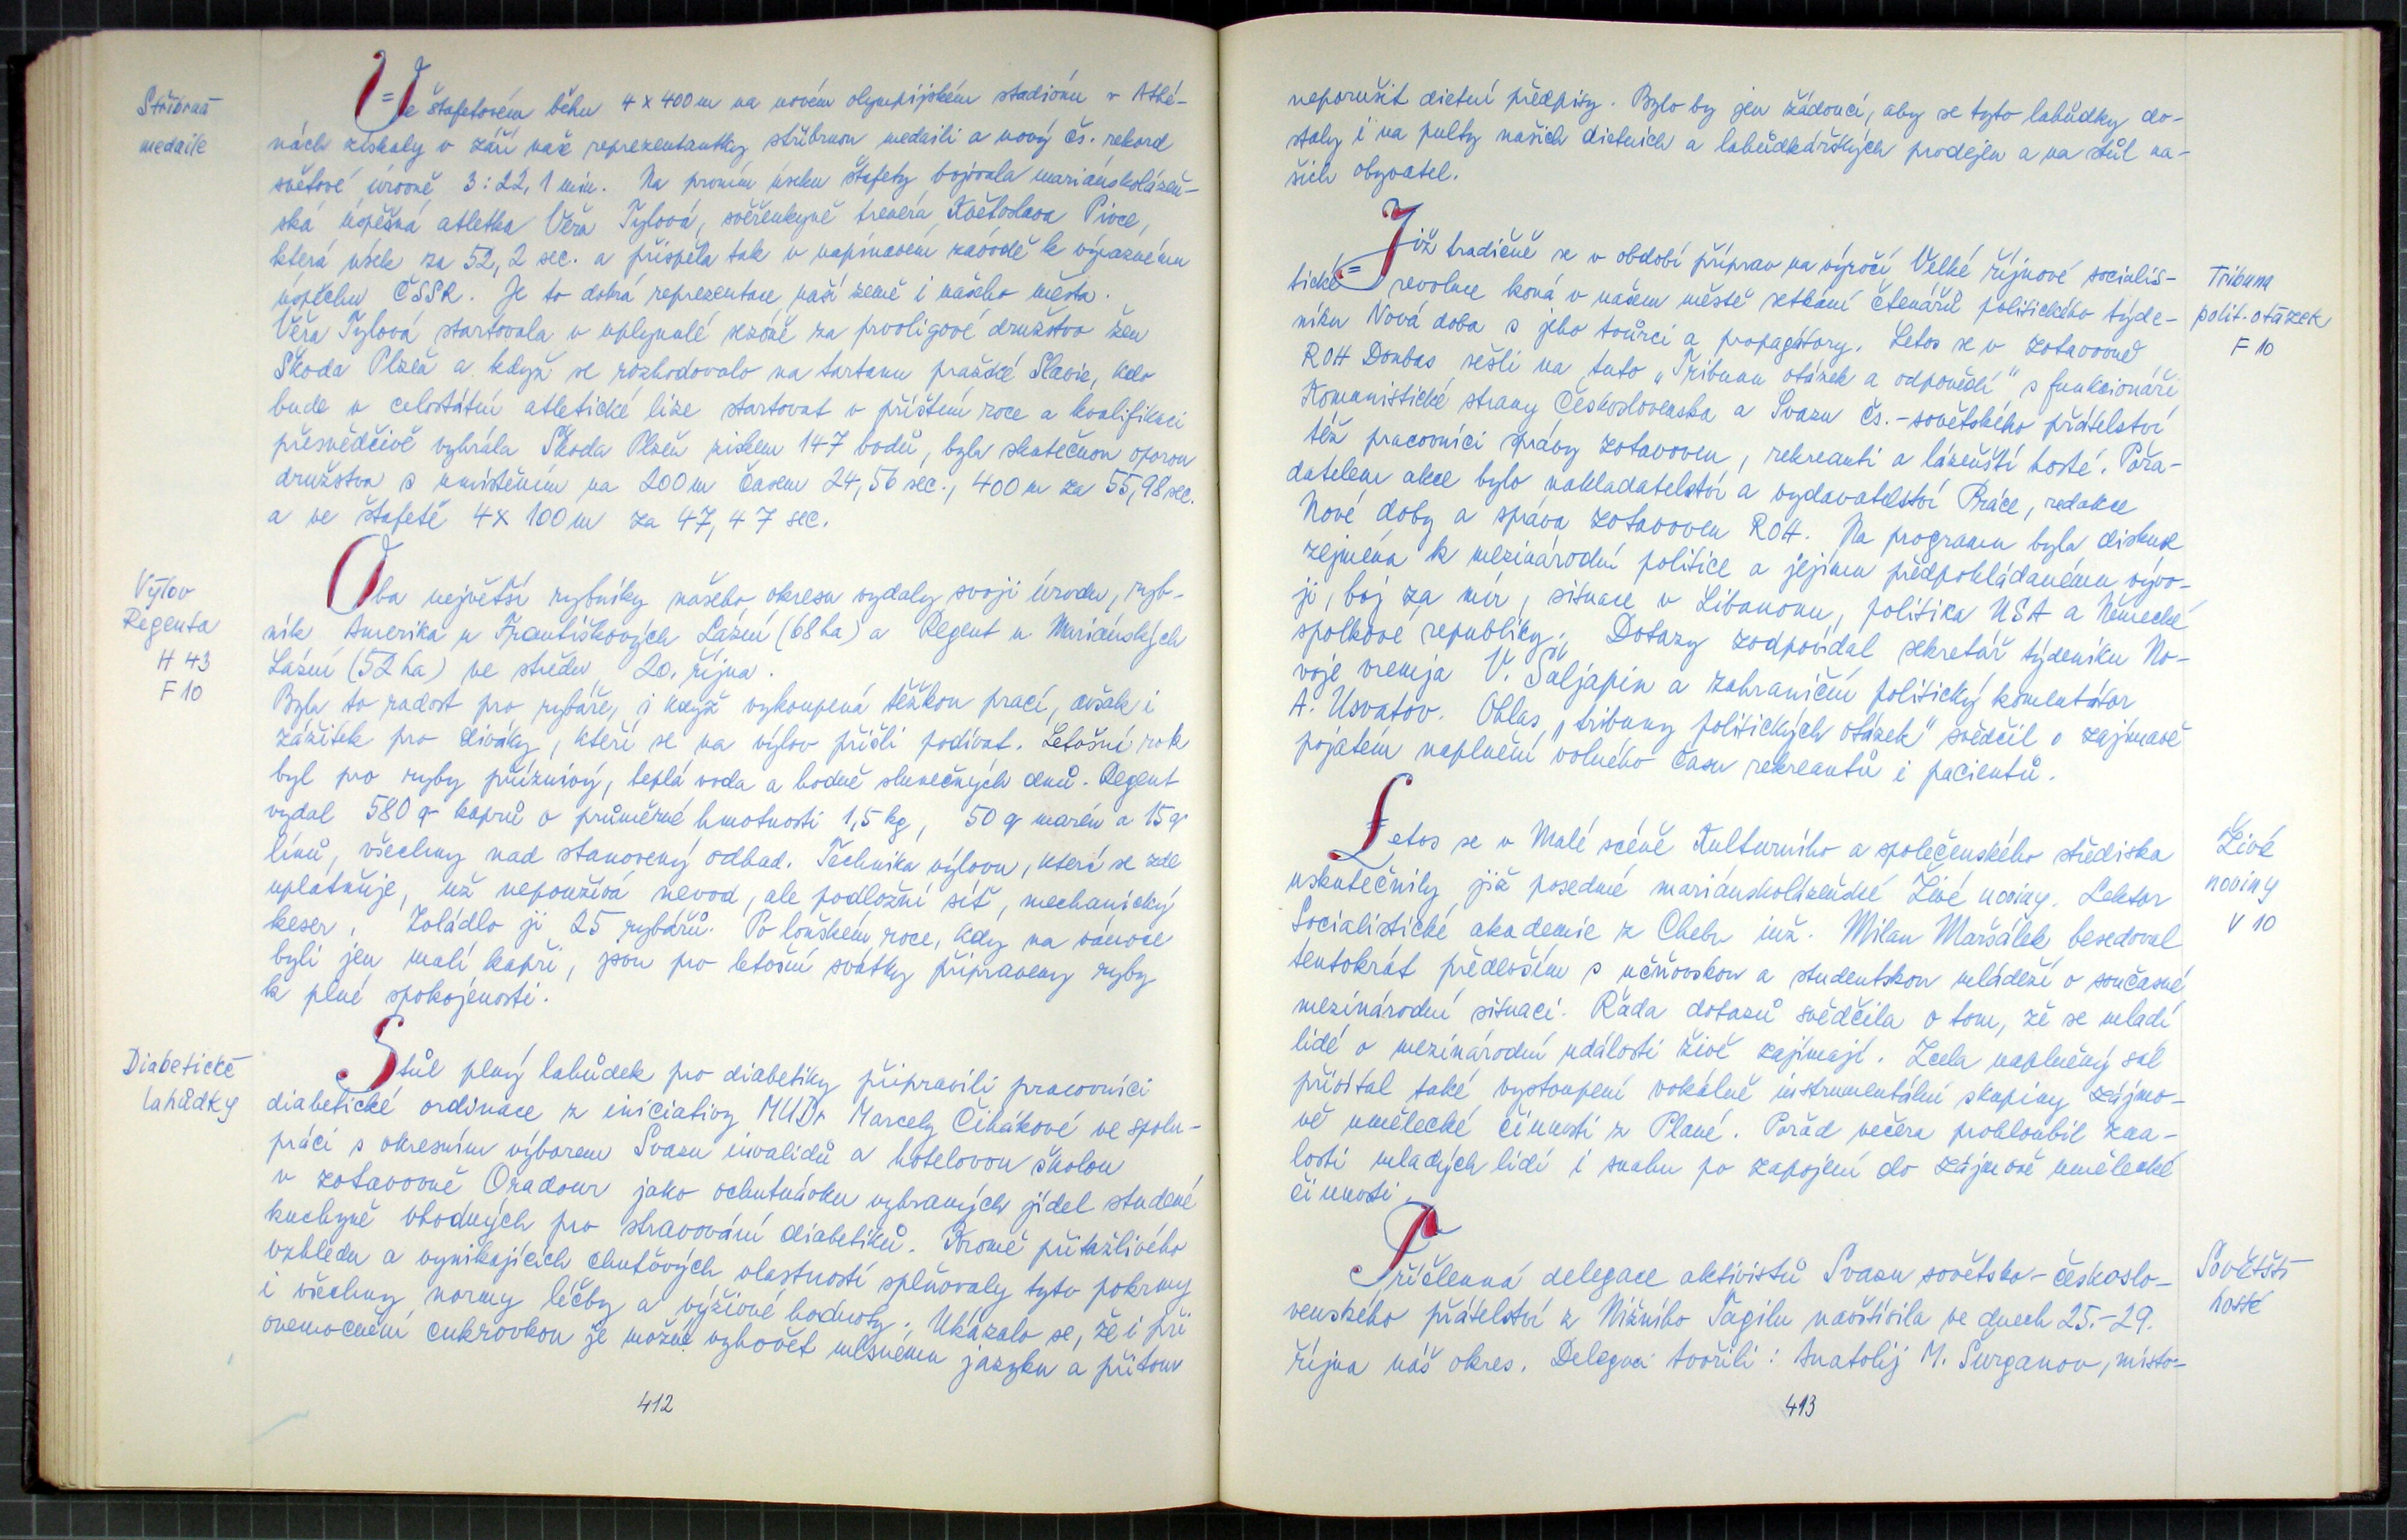 Stříbrná
medaile
Ve štafetovém běhu 4 x 400 m na novém olympijském stadiónu v Athé-
nách získaly v září naše reprezentantky stříbrnou medaili a nový čs. rekord
světové úrovně 3:22,1 min. Na prvním úseku štafety bojovala mariánskolázeň-
ská úspěšná atletka Věra Tylová, svěřenkyně trenéra Květoslava Pivce,
která úsek za 52,2 sec. a přispěla tak v napínavém závodě k výraznému
úspěchu ČSSR. Je to dobrá reprezentace naší země i našeho města.
Věra Tylová startovala v uplynulé sezóně za prvoligové družstvo žen
Škoda Plzeň a když se rozhodovalo na tartanu pražské Slavie, kdo
bude v celostátní atletické lize startovat v příštím roce a kvalifikaci
přesvědčivě vyhrála Škoda Plzeň ziskem 147 bodů, byla skutečnou oporou
družstva s umístěním na 200 m časem 24,56 sec., 400 m za 55,98 sec.
a ve štafetě 4x 100 m za 47,47 sec.
Výlov
Regenta
H 43
F 10
Oba největší rybníky našeho okresu vydaly svoji úrodu, ryb-
ník Amerika u Františkových Lázní (68 ha) a Regent u Mariánských
Lázní (52 ha) ve středu 20. října.
Byla to radost pro rybáře, i když vykoupená těžkou prací, avšak i
zážitek pro diváky, kteří se na výlov přišli podívat. Letošní rok
byl pro ryby příznivý, teplá voda a hodně slunečných dnů. Regent
vydal 580 q kaprů o průměrné hmotnosti 1,5 kg, 50 q marén a 15 q
línů, všechny nad stanovený odhad. Technika výlovu, která se zde
uplatňuje, už nepoužívá nevod, ale podložní síť, mechanický
keser. Zvládlo ji 25 rybářů. Po loňském roce, kdy na vánoce
byli jen malí kapři, jsou pro letošní svátky připraveny ryby
k plné spokojenosti.
Diabetické
lahůdky
Stůl plný lahůdek pro diabetiky připravili pracovníci
diabetické ordinace z iniciativy MUDr Marcely Čihákové ve spolu-
práci s okresním výborem Svazu invalidů a hotelovou školou
v zotavovně Oradour jako ochutnávku vybraných jídel studené
kuchyně vhodných pro stravování diabetiků. Kromě přitažlivého
vzhledu a vynikajících chuťových vlastností splňovaly tyto pokrmy
i všechny normy léčby a výživné hodnoty. Ukázalo se, že i při
onemocnění cukrovkou je možné vyhovět mlsnému jazyku a přitom
412
neporušit dietní předpisy. Bylo by jen žádoucí, aby se tyto lahůdky do-
staly i na pulty našich dietních a lahůdkářských prodejen a na stůl na-
šich obyvatel.
Tribuna
polit. otázek
F 10
Již tradičně se v období příprav na výročí Velké říjnové socialis-
tické revoluce koná v našem městě setkání čtenářů politického týde-
níku Nová doba s jeho tvůrci a propagátory. Letos se v zotavovně
ROH Donbas sešli na tuto „Tribunu otázek a odpovědí“ s funkcionáři
Komunistické strany Československa a Svazu čs.-sovětského přátelství
též pracovníci správy zotavoven, rekreanti a lázeňští hosté. Pořa-
datelem akce bylo nakladatelství a vydavatelství Práce, redakce
Nové doby a správa zotavoven ROH. Na programu byla diskuse
zejména k mezinárodní politice a jejímu předpokládanému vývo-
ji, boj za mír, situace v Libanonu, politika USA a Německé
spolkové republiky. Dotazy zodpovídal sekretář týdeníku No-
voje vremja V. Šaljapin a zahraniční politický komentátor
A. Usvatov. Ohlas „tribuny politických otázek“ svědčil o zajímavě
pojatém naplnění volného času rekreantů i pacientů.
Živé
noviny
V 10
Letos se v Malé scéně Kulturního a společenského střediska
uskutečnily již posedmé mariánskolázeňské Živé noviny. Lektor
Socialistické akademie z Chebu inž. Milan Maršálek besedoval
tentokrát především s učňovskou a studentskou mládeží o současné
mezinárodní situaci. Řada dotazů svědčila o tom, že se mladí
lidé o mezinárodní události živě zajímají. Zcela naplněný sál
přivítal také vystoupení vokálně instrumentální skupiny zájmo-
vě umělecké činnosti z Plané. Pořad večera prohloubil zna-
losti mladých lidí i snahu po zapojení do zájmově umělecké
činnosti.
Sovětští
hosté
Tříčlenná delegace aktivistů Svazu sovětsko-českoslo-
venského přátelství z Nižního Tagilu navštívila ve dnech 25.-29.
října náš okres. Delegaci tvořili: Anatolij M. Surganov, místo-
413